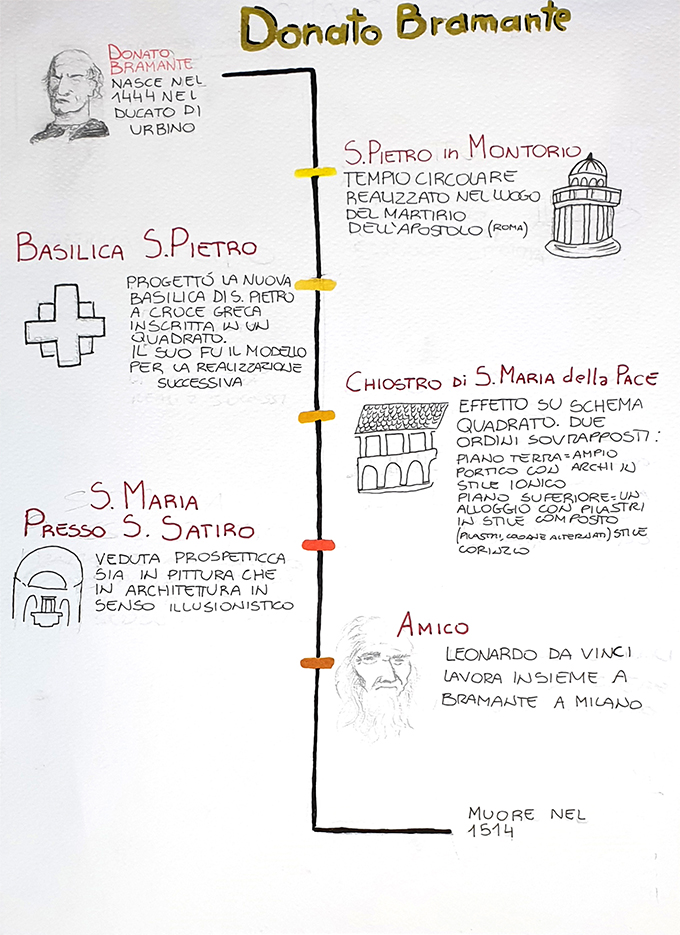 Donato Bramante
DONATO
BRAMANTE
NASCE NEL
1444 NEL
DUCATO DI
URBINO
S. PIETRO in MONTORIO
TEMPIO CIRCOLARE
REALIZZATO NEL LUOGO
DEL MARTIRIO
DELL'APOSTOLO (ROMA)
BASILICA S. PIETRO
PROGETTÓ LA NUOVA
BASILICA DI S. PIETRO
A CROCE GRECA
INSCRITTA IN UN
QUADRATO.
IL SUO FU IL MODELLO
PER LA REALIZZAZIONE
SUCCESSIVA
CHIOSTRO di S. MARIA della PACE
EFFETTO SU SCHEMA
QUADRATO. DUE
ORDINI SOVRAPPOSTI:
PIANO TERRA = AMPIO
PORTICO CON ARCHI IN
STILE IONICO
PIANO SUPERIORE = UN
ALLOGGIO CON PILASTRI
IN STILE COMPOSTO
(PILASTRI, COLONNE ALTERNATI) STILE
CORINZIO
S. MARIA
PRESSO S. SATIRO
VEDUTA PROSPETTICCA
SIA IN PITTURA CHE
IN ARCHITETTURA IN
SENSO ILLUSIONISTICO
AMICO
LEONARDO DA VINCI
LAVORA INSIEME A
BRAMANTE A MILANO
MUORE NEL
1514